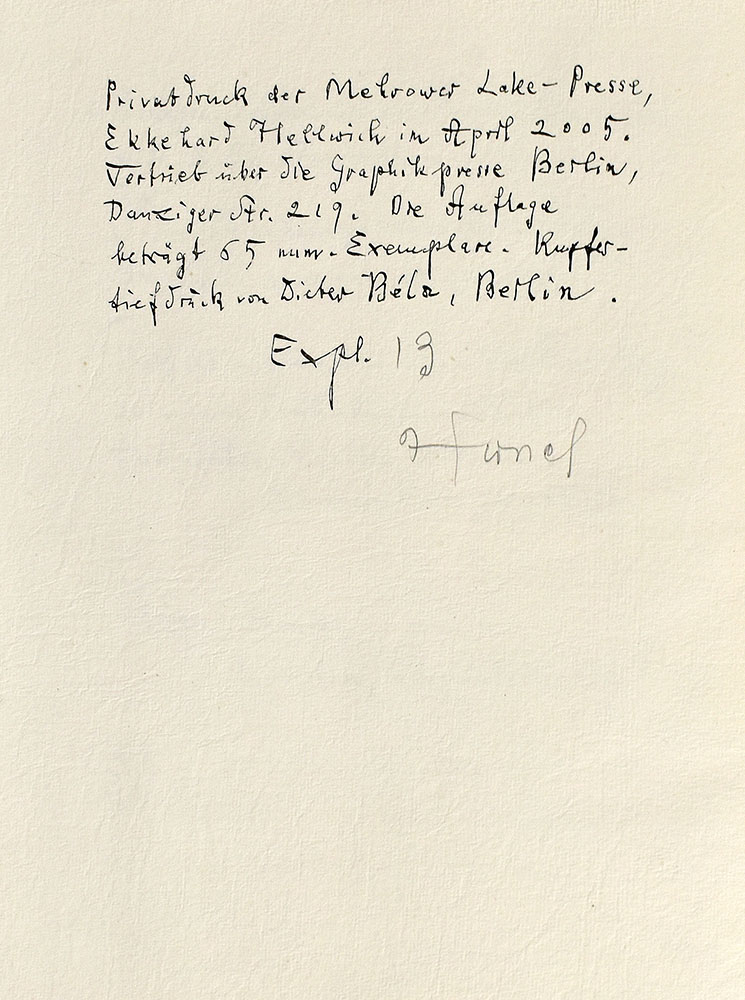 Privatdruck der Mehrower Lake-Presse,
Ekkehard Hellwich im April 2005.
Vertrieb über die Graphikpresse Berlin,
Danziger Str. 219. Die Auflage
beträgt 65 num. Exemplare. Kupfer-
tiefdruck von Dieter Béla, Berlin.
Expl. 13